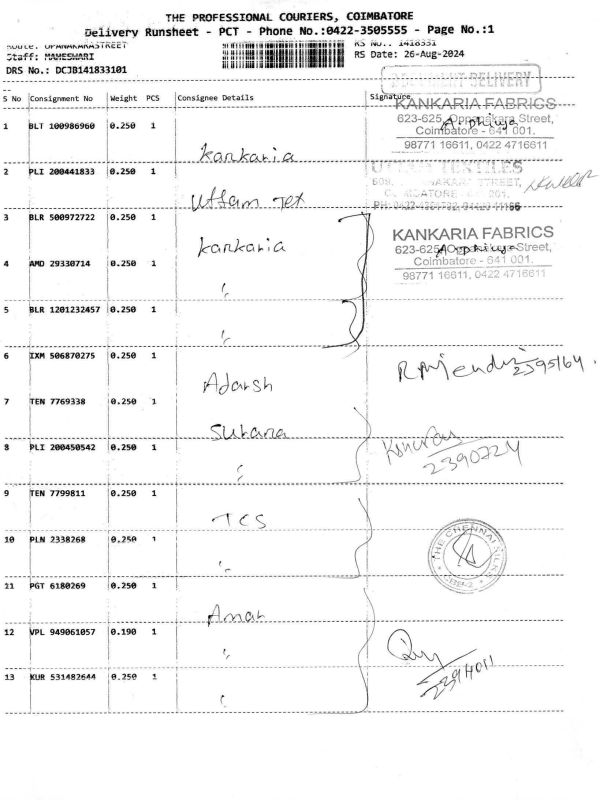 THE PROFESSIONAL COURIERS, COIMBATORE
Delivery Runsheet - PCT - Phone No.:0422-3505555 - Page No.:1
Route: OPANAKARASTREET RS No.: 1418331
Staff: MAHESWARI RS Date: 26-Aug-2024
DRS No.: DCJB141833101
DELIVERY
S No Consignment No Weight PCS Consignee Details Signature
KANKARIA FABRICS
1 BLT 100986960 0.250 1 623-625, Oppanakara Street,
Coimbatore - 641 001.
98771 16611, 0422 4716611
Kankaria
2 PLI 200441833 0.250 1 TEXTILES
Uttam Tex
3 BLR 500972722 0.250 1 KANKARIA FABRICS
Kankaria 623-625, Oppanakara Street,
4 AMD 29330714 0.250 1 Coimbatore - 641 001.
98771 16611, 0422 4716611
"
5 BLR 1201232457 0.250 1
"
6 IXM 506870275 0.250 1
2395164
Adarsh
7 TEN 7769338 0.250 1
Surana
8 PLI 200450542 0.250 1
" 2390724
9 TEN 7799811 0.250 1
TCS
10 PLN 2338268 0.250 1 THE CHENNAI SILKS
" CBE-2
11 PGT 6180269 0.250 1
Aman
12 VPL 949061057 0.190 1
"
13 KUR 531482644 0.250 1 2394011
"